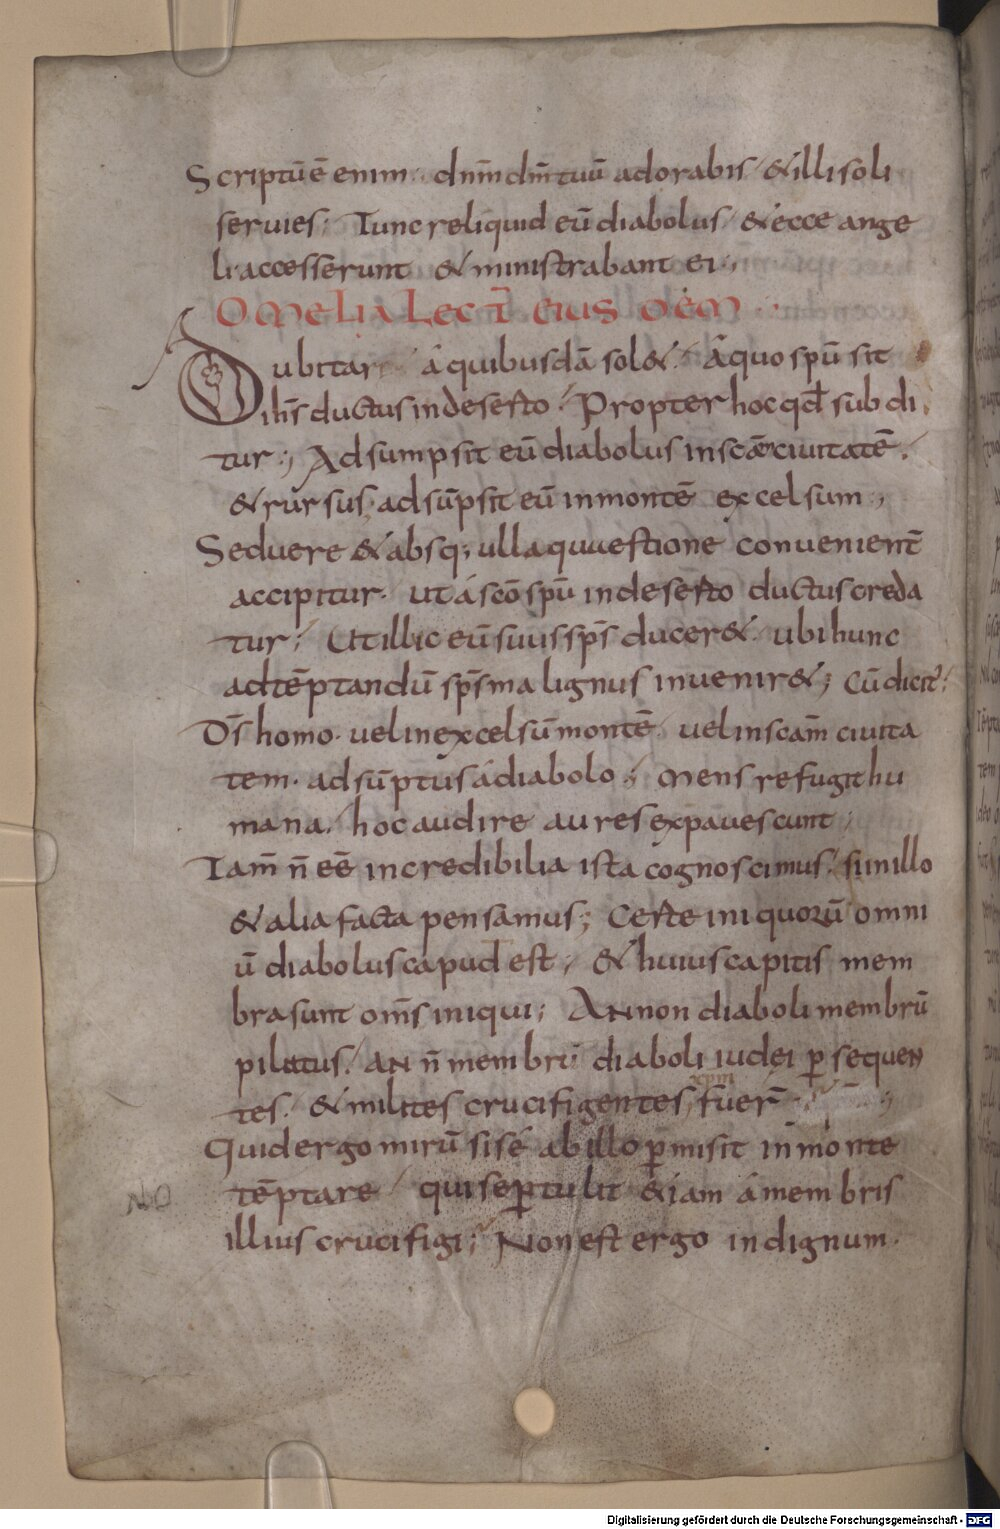 Scriptū ē enim. dnm̄ dm̄ tuū adorabis / & illi soli
seruies; Tunc reliquid eū diabolus / & ecce ange
li accesserunt & ministrabant ei;
OMELIA LECT̄ EIUS DEM
Dubitari á quibusdā sol&. Á quo spū sit
ihs̄ ductus in deserto. Propter hoc qd̄ sub di
tur; Adsumpsit eū diabolus in scāciuitatē.
& rursus adsūpsit eū inmontē excelsum;
Seduere & absq; ulla quuestione conuenient̄
accipitur. ut á scō spū indeserto ductus creda
tur; Ut illic eū suus sps̄ ducer&. ubi hunc
adtēptandū sps̄ malignus inuenir&; Cū dicit̄
Ds̄ homo. uel inexcelsū montē. uel in scam̄ ciuita
tem. adsūptus á diabolo; Mens refugit hu
mana. hoc audire aures expauescunt;
Tam̄ n̄ eē incredibilia ista cognoscimus. si in illo
& alia facta pensamus; Certe iniquorū omni
ū diabolus capud est; & huius capitis mem
bra sunt oms̄ iniqui; AN non diaboli membrū
pilatus. AN n̄ membrū diaboli iudei p̄sequen
tes. & milites crucifigentes xpm fuer̄
Quid ergo mirū si sé ab illo p̄misit in monte
tēptare / qui se p̄tulit &iam á membris
NO
illius crucifigi; Non est ergo indignum.
Digitalisierung gefördert durch die Deutsche Forschungsgemeinschaft - DFG